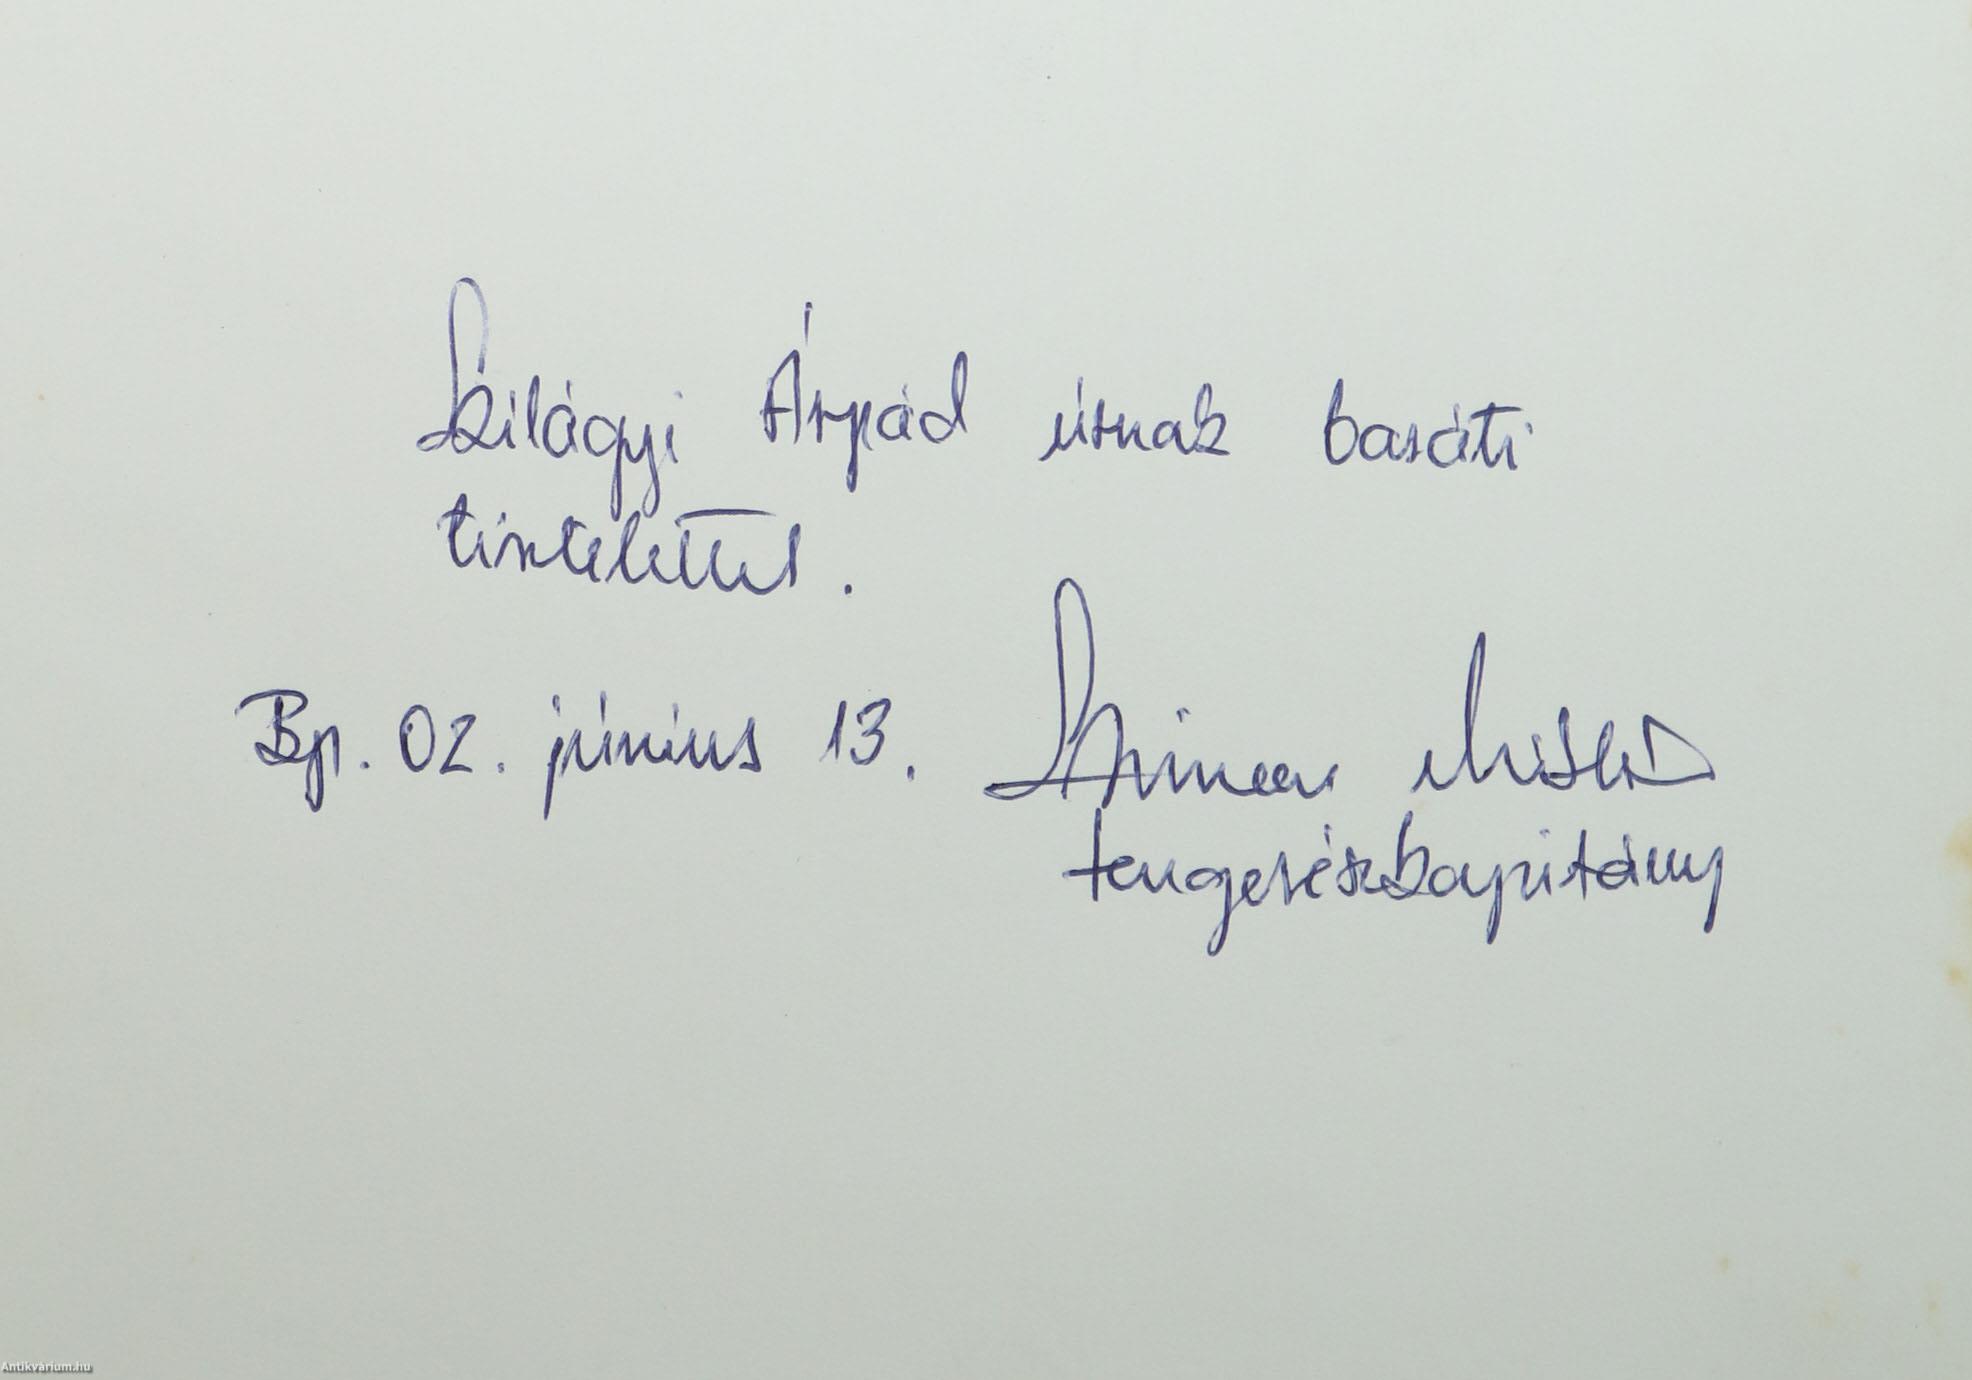 Szilágyi Árpád úrnak baráti
tisztelettel.
Bp. 02. június 13.
tengerészkapitány
Antikvárium.hu